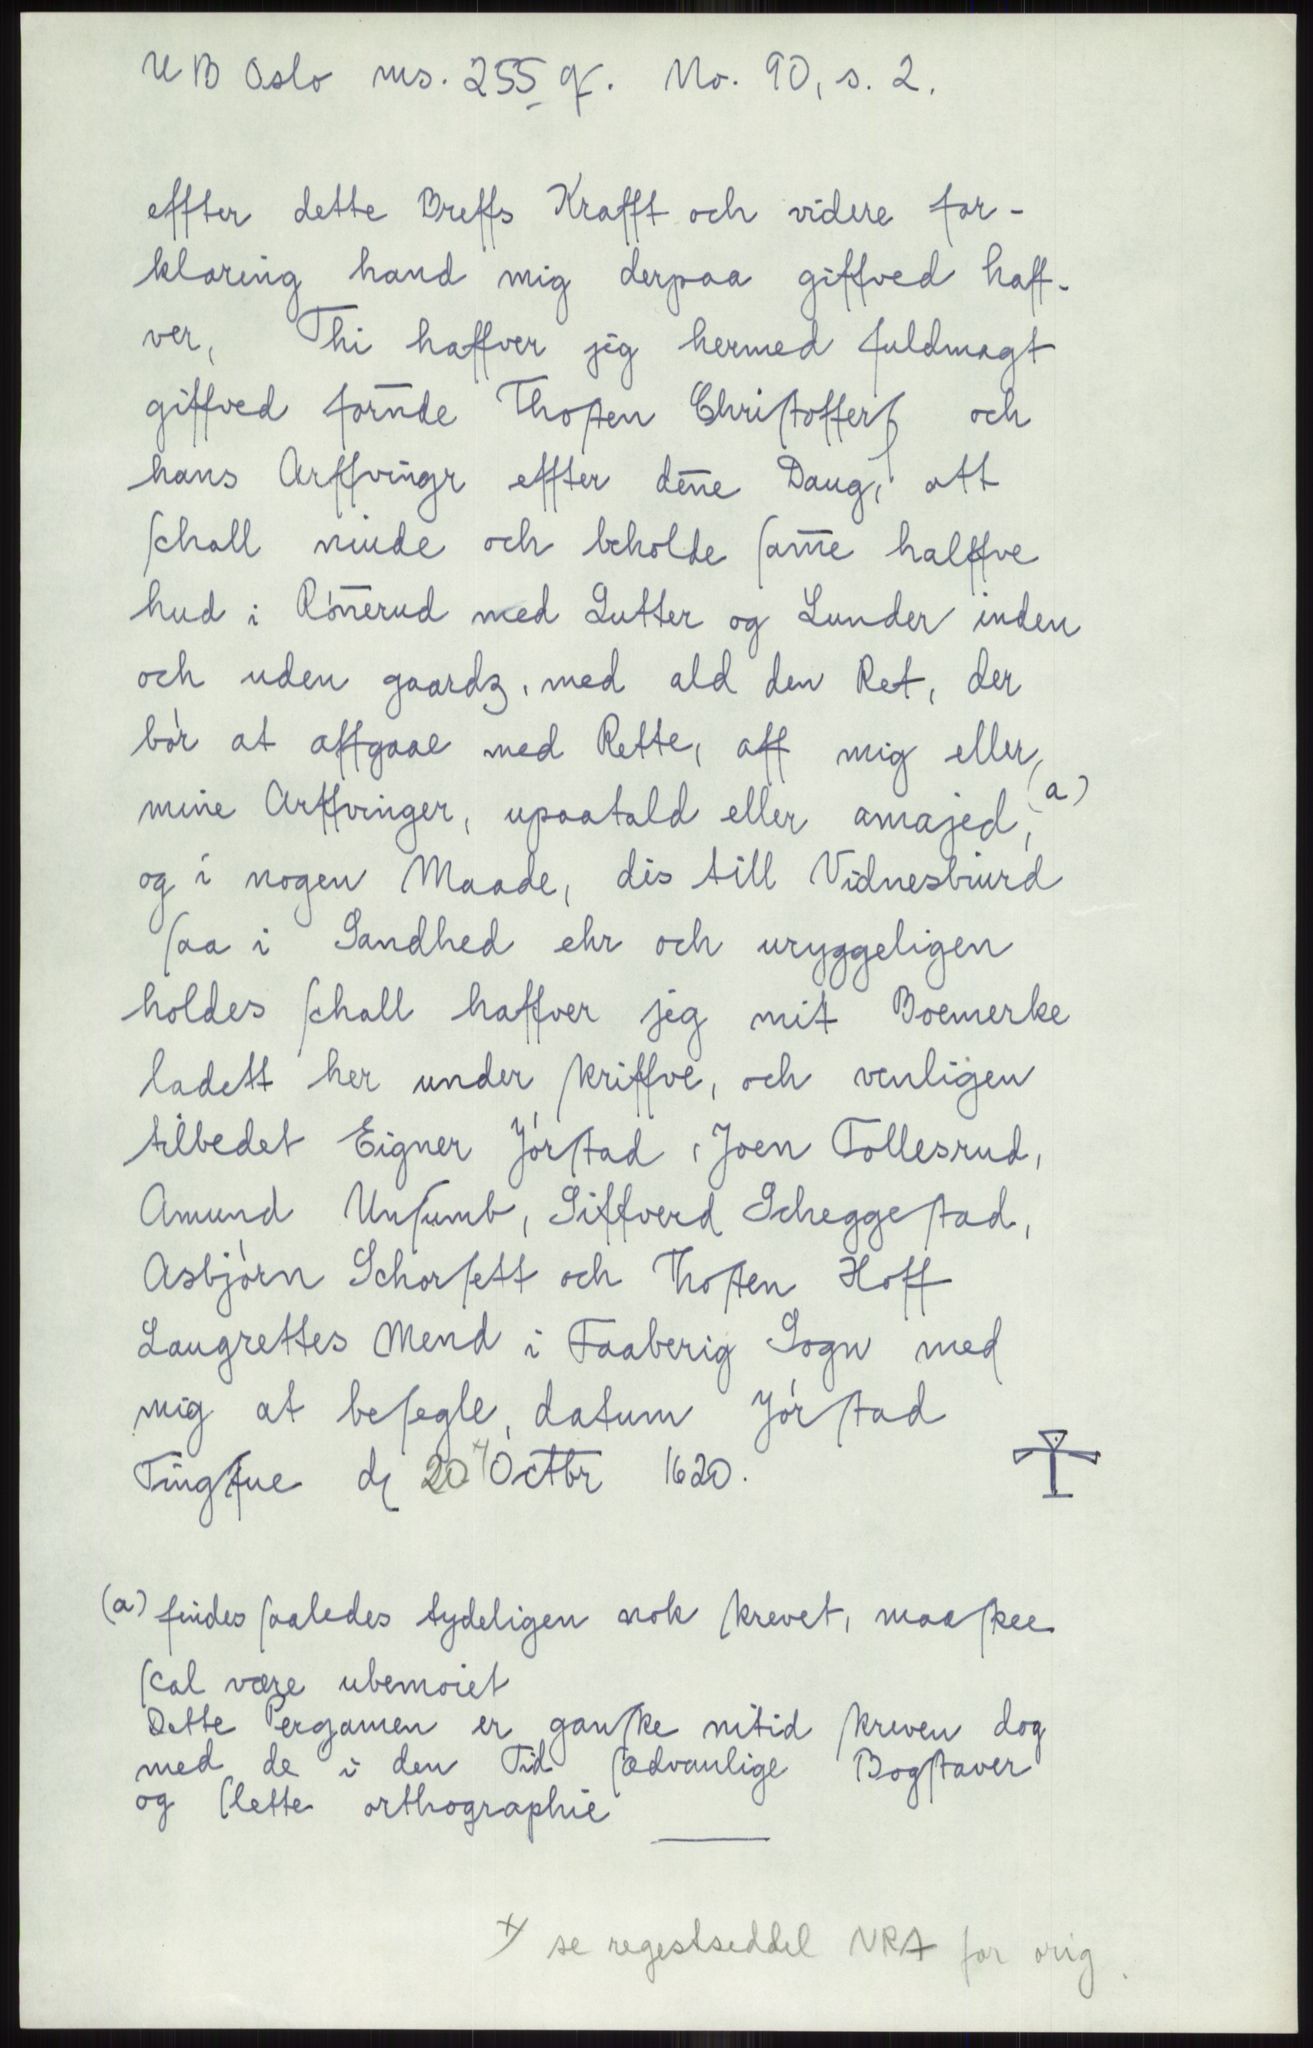 UB Oslo ms. 255 q. No. 90, s. 2.
effter dette Breffs Krafft och videre for-
klaring hand mig derpaa giffved haff-
ver, Thi haffver jig hermed fuldmagt
giffved forn̄de Thoſten Chriſtofferſ och
hans Arffvingr effter den̄e Daug, att
ſchall niude och beholde ſam̄e halffve
hud i Rón̄erud med Lutter og Lunder inden
och uden gaardz, med ald den Ret, der
bór at affgaae med Rette, aff mig eller
mine Arffvinger, upaatald eller amajed, (a)
og i nogen Maade, dis till Vidnesbiurd
ſaa i Sandhed ehr och uryggeligen
holdes ſchall haffver jig mit Boemerke
ladett her under ſkriffve, och venligen
tilbedet Eigner Jórſtad, Joen Tollesrud,
Amund Unſumb, Siffverd Scheggeſtad,
Asbjórn Schorſett och Thoſten Hoff
Laugrettes Mend i Faaberig Sogn med
mig at beſegle, datum Jórſtad
Tingſtue d 20 x) Octbr 1620.
(a) findes ſaaledes tydeligen nok ſkrevet, maaſkee
ſcal være ubemoiet
Dette Pergamen er ganſke nitid ſkreven dog
med de i den Tid ſædvanlige Bogſtaver
og ſlette orthographie
x) se regestseddel NRA for orig.